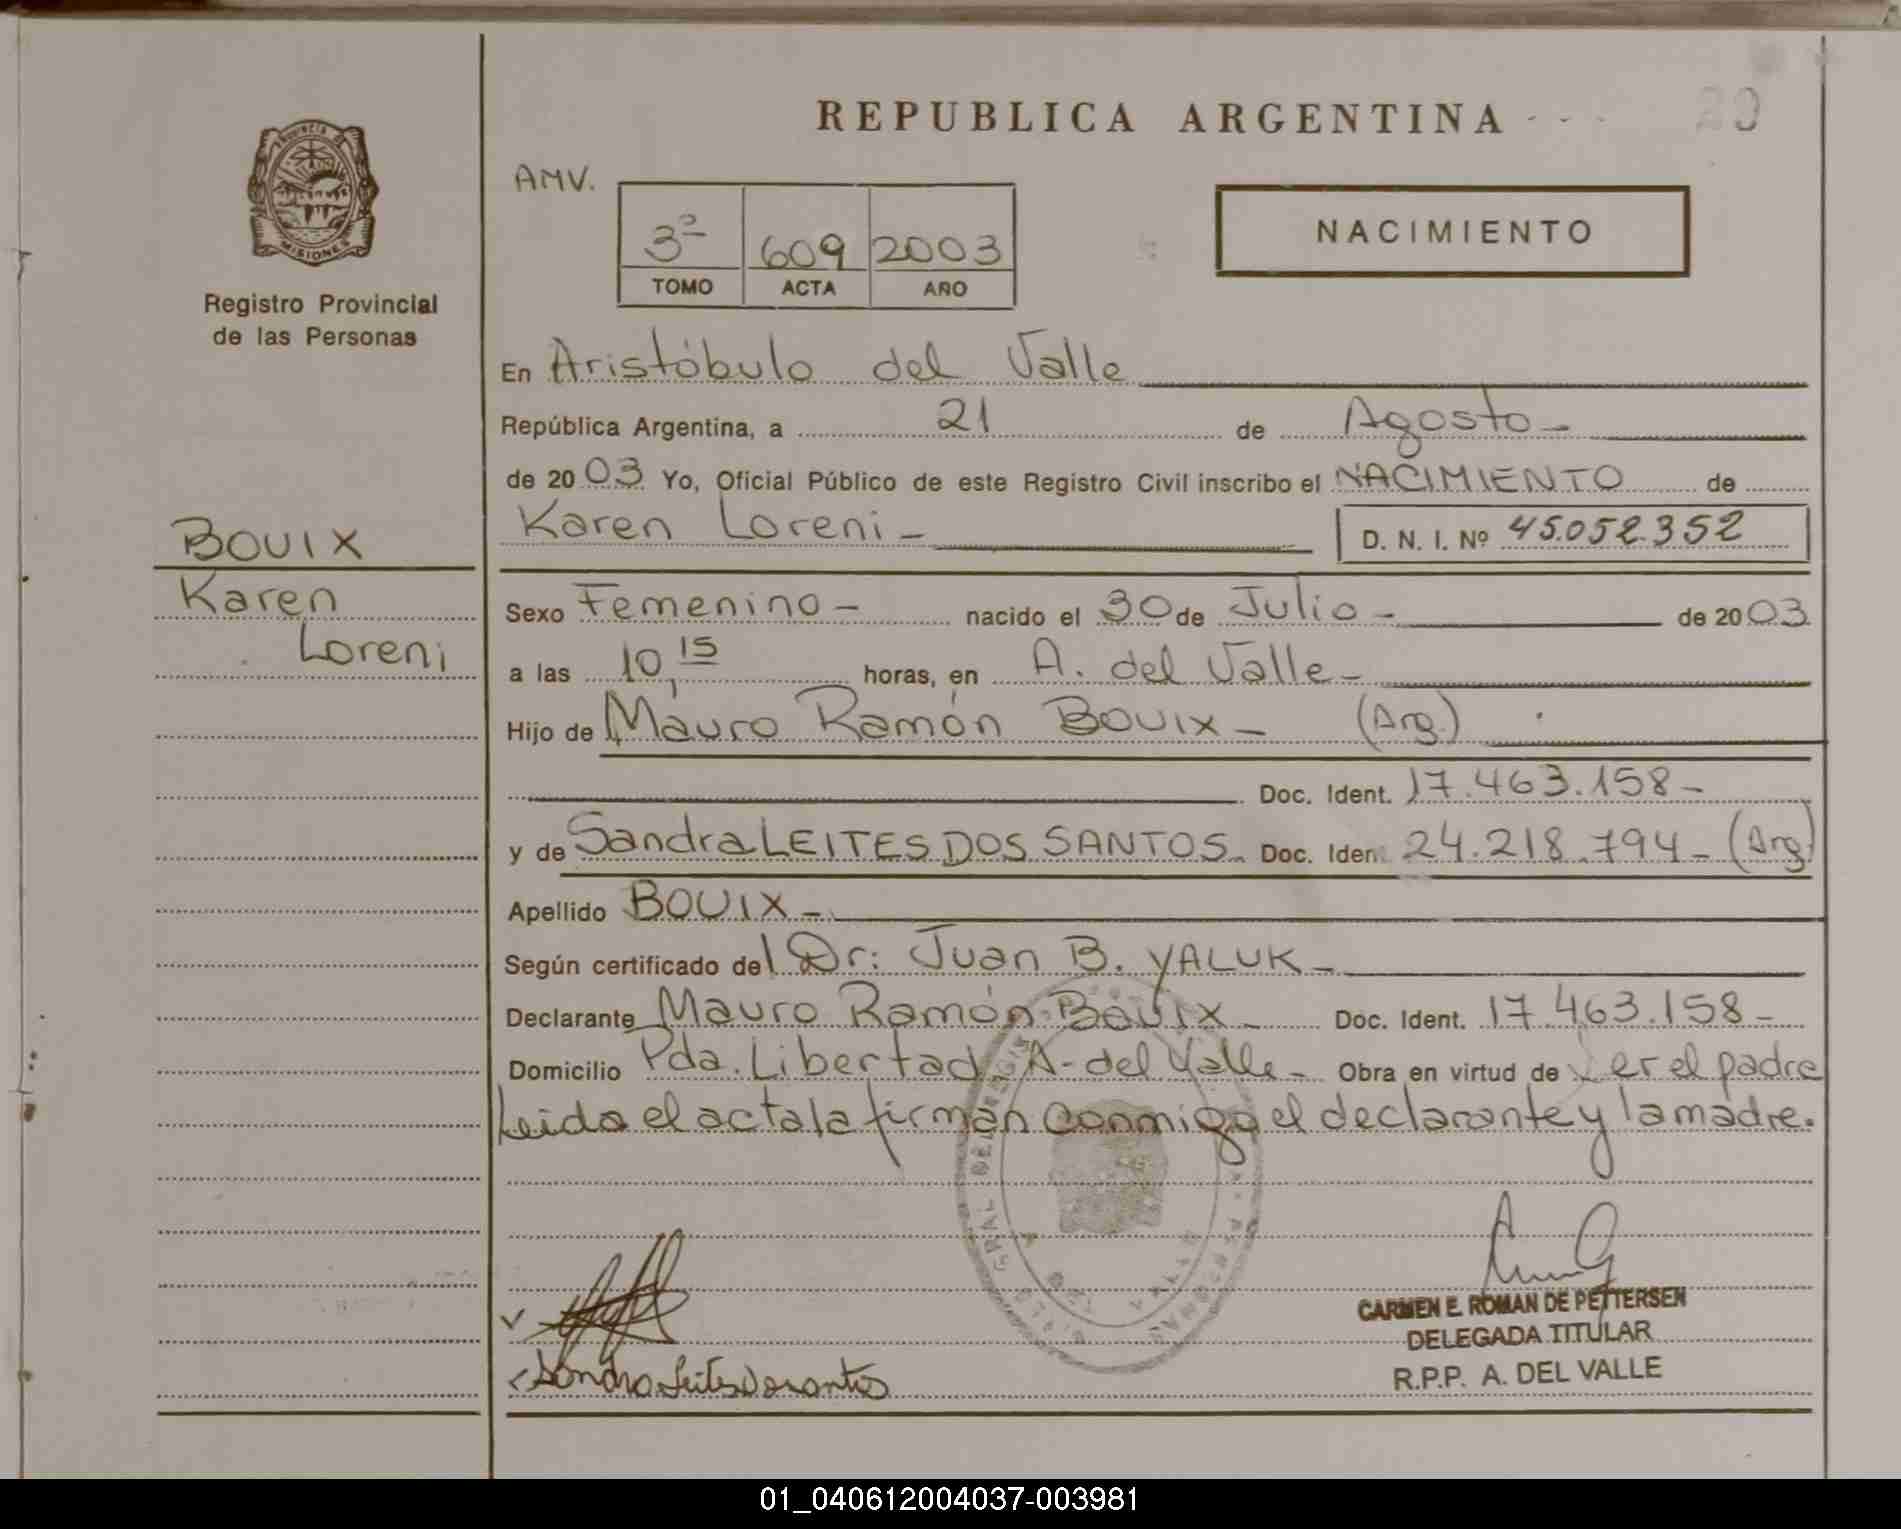 REPUBLICA ARGENTINA
AMV.
NACIMIENTO
3ª 609 2003
TOMO ACTA AÑO
PROVINCIA DE MISIONES
Registro Provincial
de las Personas
En Aristóbulo del Valle
República Argentina, a 21 de Agosto-
de 2003 Yo, Oficial Público de este Registro Civil inscribo el NACIMIENTO de
Karen Loreni- D. N. I. Nº 45.052.352
BOUIX
Karen
Loreni
Sexo Femenino- nacido el 30 de Julio- de 2003
a las 10,15 horas, en A. del Valle-
Hijo de Mauro Ramón BOUIX- (Arg.)
Doc. Ident. 17.463.158-
y de Sandra LEITES DOS SANTOS. Doc. Iden. 24.218.794- (Arg)
Apellido BOUIX-
Según certificado del Dr: Juan B. YALUK-
Declarante Mauro Ramón BOUIX- Doc. Ident. 17.463.158-
Domicilio Pda. Libertad A- del Valle- Obra en virtud de ser el padre
Leida el acta la firman conmigo el declarante y la madre.
CARMEN E. ROMAN DE PETTERSEN
DELEGADA TITULAR
R.P.P. A. DEL VALLE
01_040612004037-003981